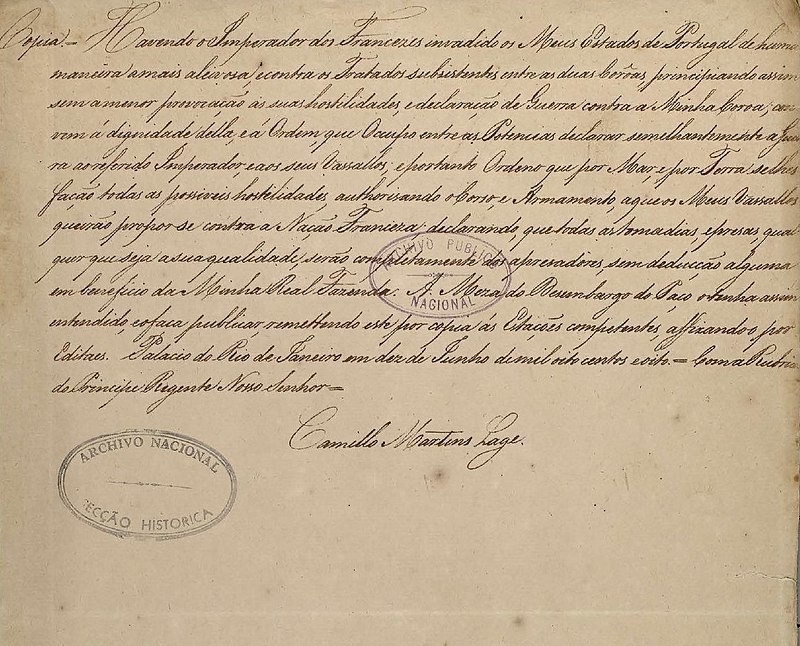 Copia.= Havendo o Imperador dos Francezes invadido os Meus Estados de Portugal de huma
maneira a mais aleivosa, e contra os Tratados subsistentes entre as duas Corôas, principiando assim
sem a menor provocação as suas hostilidades, e declaração de Guerra contra a Minha Coroa; con-
vem á dignidade della, e á Ordem, que Occupo entre as Potencias declarar semelhantemente a Guer-
ra ao referido Imperador e aos seus Vassallos, e portanto Ordeno que por Mar, e por Terra se lhes
fação todas as possiveis hostilidades, authorisando o Corso e Armamento, a que os Meus Vassallos
queirão propor-se contra a Nação Franceza; declarando, que todas as tomadias, e presas, qual
quer que seja a sua qualidade serão completamente dos apresadores, sem deducção alguma
em beneficio da Minha Real Fazenda. A Meza do Desembargo do Paço o tenha assim
entendido, e o faça publicar, remettendo este por copia ás Estações competentes, e affixando-o por
Editaes. Palacio do Rio de Janeiro em dez de Junho de mil oito centos e oito.= Com a Rubrica
do Principe Regente Nosso Senhor=
Camillo Martins Lage.
ARCHIVO PUBLICO
NACIONAL
ARCHIVO NACIONAL
SECÇÃO HISTORICA